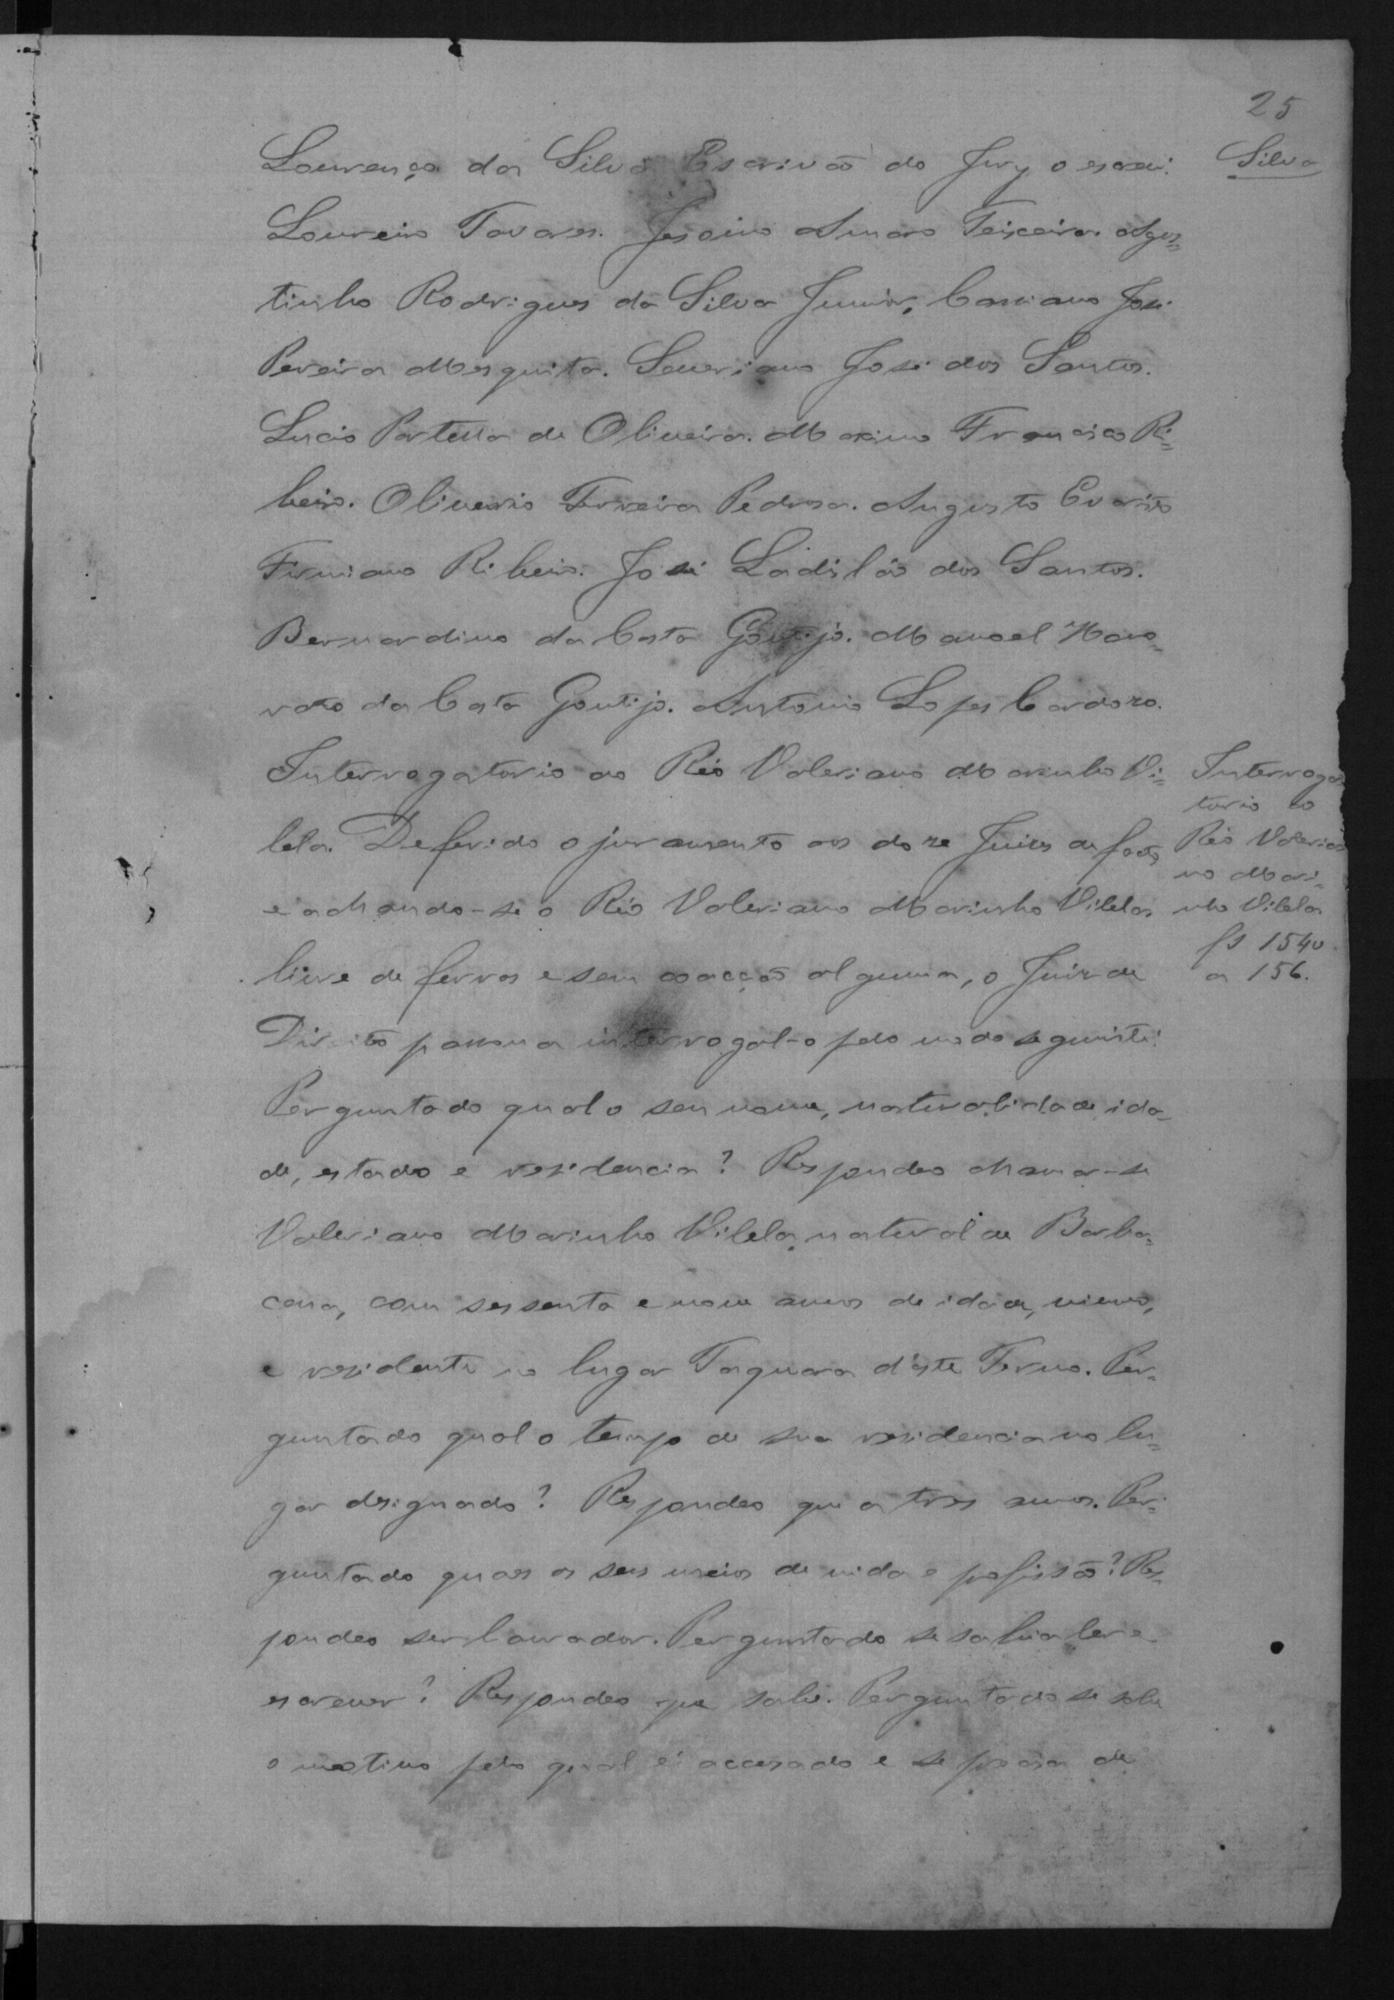 25
Silva
Lourenço da Silva Escrivão do Jury o escrevi.
Loureiro Tavares. Jesoino Amaro Teixeira. Agos=
tinho Rodrigues da Silva Junior, Cassiano José
Pereira Mesquita. Severiano José dos Santos.
Lucio Portella de Oliveira. Maximo Francisco Ri=
beiro. Oliverio Ferreira Pedrosa. Augusto Evaristo
Firmiano Ribeiro. José Ladisláo dos Santos.
Bernardino da Costa Gontijo. Manoel
da Costa Gontijo. Antonio Lopes Cardozo.
Interrogatorio ao Réo Valeriano Marinho Vi=
lela. Deferido o juramento aos doze Juizes de facto
e achando-se o Réo Valeriano Marinho Vilela
livre de ferros e sem coacção alguma, o Juiz de
Direito passou a interrogal-o pelo modo seguinte:
Perguntado qual o seu nome, naturalidade ida-
de, estado e residencia? Respondeo chamar-se
Valeriano Marinho Vilela, natural de Barba-
cena, com sessenta e nove annos de idade, viuvo,
e residente no lugar Taquara d'este Termo. Per-
guntado qual o tempo de sua residencia no lu-
gar designado? Respondeo que a tres annos. Per-
guntado quaes os seus meios de vida e profissão? Res-
pondeo ser lavrador. Perguntado se sabia ler e
escrever? Respondeo que sabe. Perguntado se sabe
o motivo pelo qual é accusado e se precisa de
Interroga
torio ao
Réo Valeria
no Mari-
nho Vilela
fs 154v
a 156.